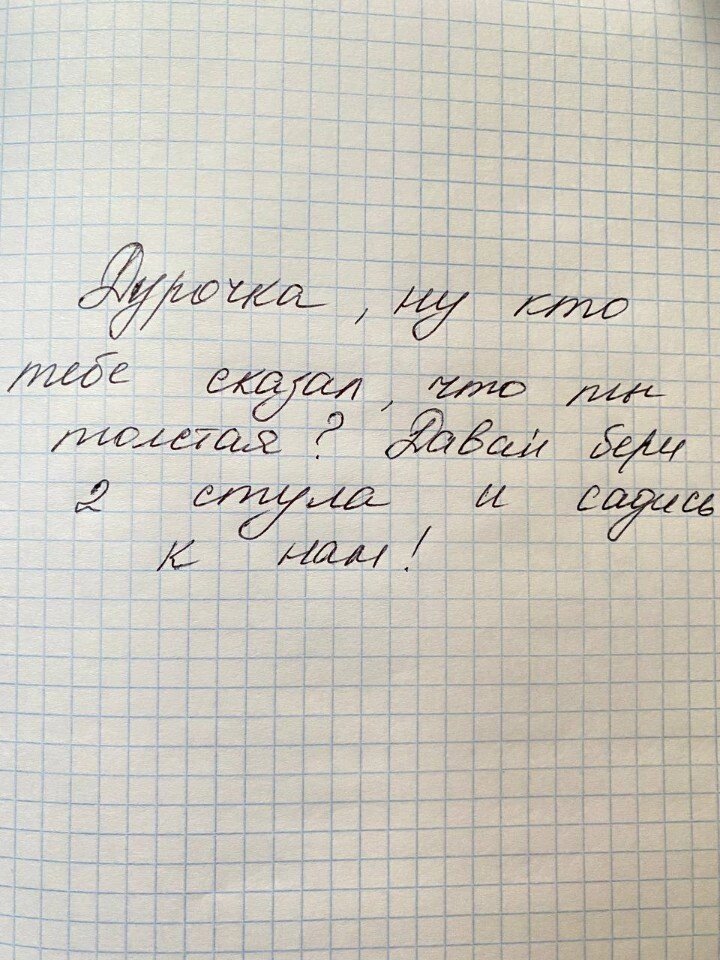 Дурочка, ну кто
тебе сказал, что ты
толстая? Давай бери
2 стула и садись
к нам!